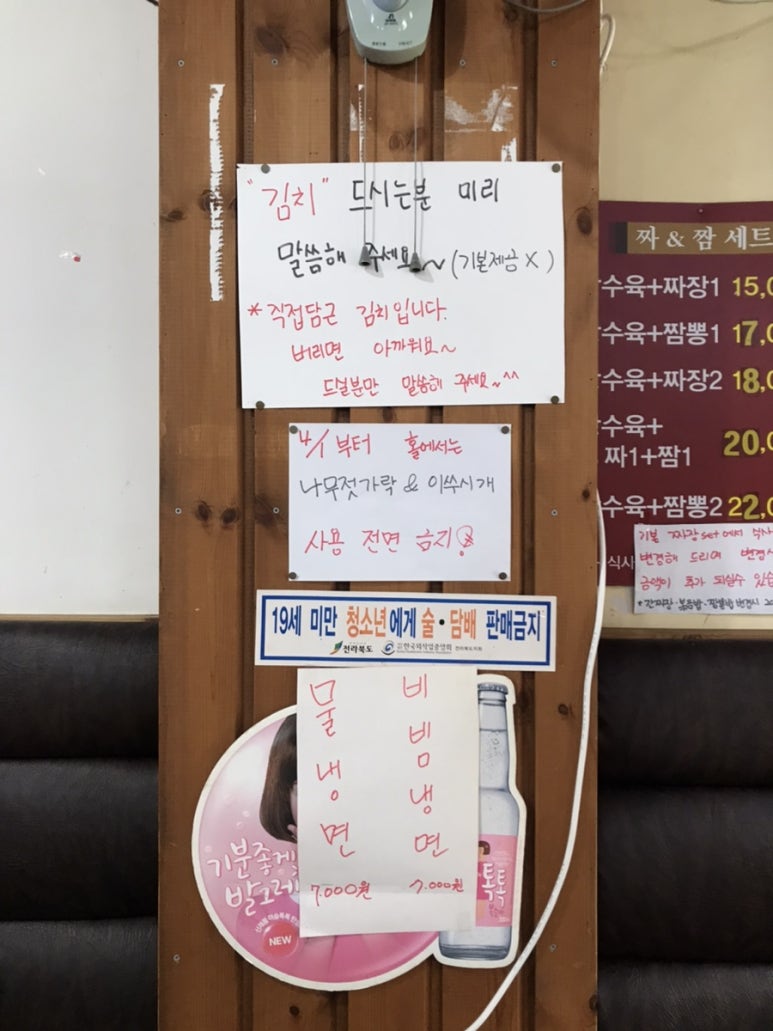 "김치" 드시는분 미리
말씀해 주세요~ (기본제공 X)
* 직접담근 김치입니다.
버리면 아까워요~
드실분만 말씀해 주세요~^^
4/1 부터 홀에서는
나무젓가락 & 이쑤시개
사용 전면 금지
19세 미만 청소년에게 술·담배 판매금지
전라북도 한국외식업중앙회 전라북도지회
물냉면 7.000원
비빔냉면 7.000원
기분좋게
발그레
NEW
톡톡
짜 & 짬 세트
수육+짜장1 15,0
수육+짬뽕1 17,0
수육+짜장2 18,0
수육+
짜1+짬1 20,0
수육+짬뽕2 22,0
식사
기본 짜장set에서 식사
변경해 드리며 변경시
금액이 추가 되실수 있습
* 간짜장·볶음밥·잡채밥변경시